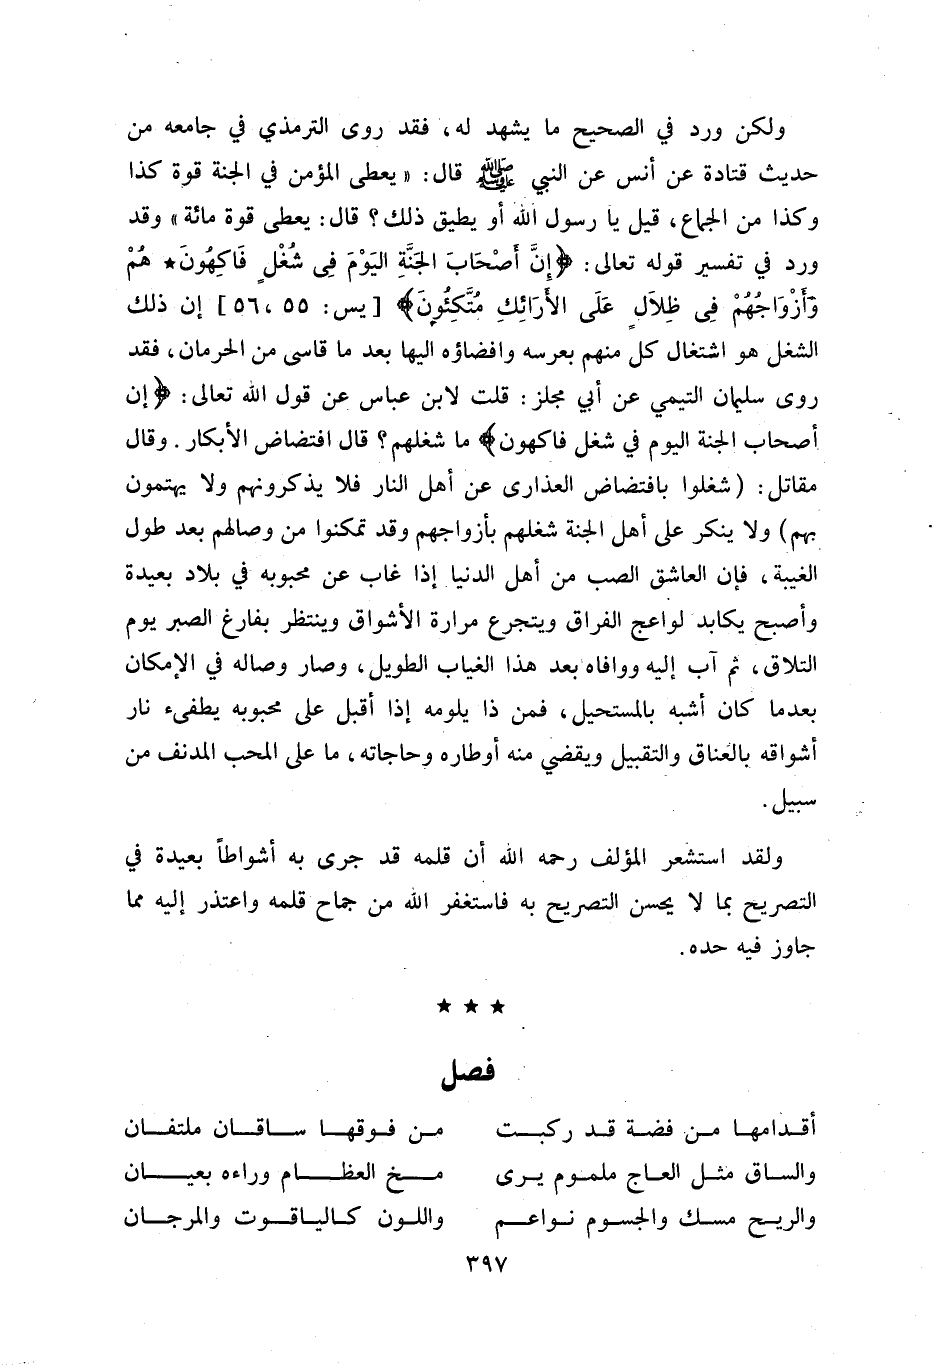 ولكن ورد في الصحيح ما يشهد له، فقد روى الترمذي في جامعه من
حديث قتادة عن أنس عن النبي ﷺ قال: « يعطى المؤمن في الجنة قوة كذا
وكذا من الجماع، قيل يا رسول الله أو يطيق ذلك؟ قال: يعطى قوة مائة» وقد
ورد في تفسير قوله تعالى: ﴿إِنَّ أَصْحَابَ الجَنَّةِ اليَوْمَ فِى شُغْلٍ فَاكِهُونَ★ هُمْ
وَأَزْوَاجُهُمْ فِى ظِلَالٍ عَلَى الأَرَائِكِ مُتَّكِئُونَ﴾ [يس: ٥٥ ،٥٦] إن ذلك
الشغل هو اشتغال كل منهم بعرسه وافضاؤه اليها بعد ما قاسى من الحرمان، فقد
روى سليمان التيمي عن أبي مجلز: قلت لابن عباس عن قول الله تعالى: ﴿إن
أصحاب الجنة اليوم في شغل فاكهون﴾ ما شغلهم؟ قال افتضاض الأبكار. وقال
مقاتل: (شغلوا بافتضاض العذارى عن أهل النار فلا يذكرونهم ولا يهتمون
بهم) ولا ينكر على أهل الجنة شغلهم بأزواجهم وقد تمكنوا من وصالهم بعد طول
الغيبة، فإن العاشق الصب من أهل الدنيا إذا غاب عن محبوبه في بلاد بعيدة
وأصبح يكابد لواعج الفراق ويتجرع مرارة الأشواق وينتظر بفارغ الصبر يوم
التلاق، ثم آب إليه ووافاه بعد هذا الغياب الطويل، وصار وصاله في الإمكان
بعدما كان أشبه بالمستحيل، فمن ذا يلومه إذا أقبل على محبوبه يطفىء نار
أشواقه بالعناق والتقبيل ويقضي منه أوطاره وحاجاته، ما على المحب المدنف من
سبيل.
ولقد استشعر المؤلف رحمه الله أن قلمه قد جرى به أشواطاً بعيدة في
التصريح بما لا يحسن التصريح به فاستغفر الله من جماح قلمه واعتذر إليه مما
جاوز فيه حده.
★ ★ ★
فصل
أقدامها من فضة قد ركبت من فوقها ساقان ملتفان
والساق مثل العاج ملموم يرى مخ العظام وراءه بعيان
والريح مسك والجسوم نواعم واللون كالياقوت والمرجان
٣٩٧